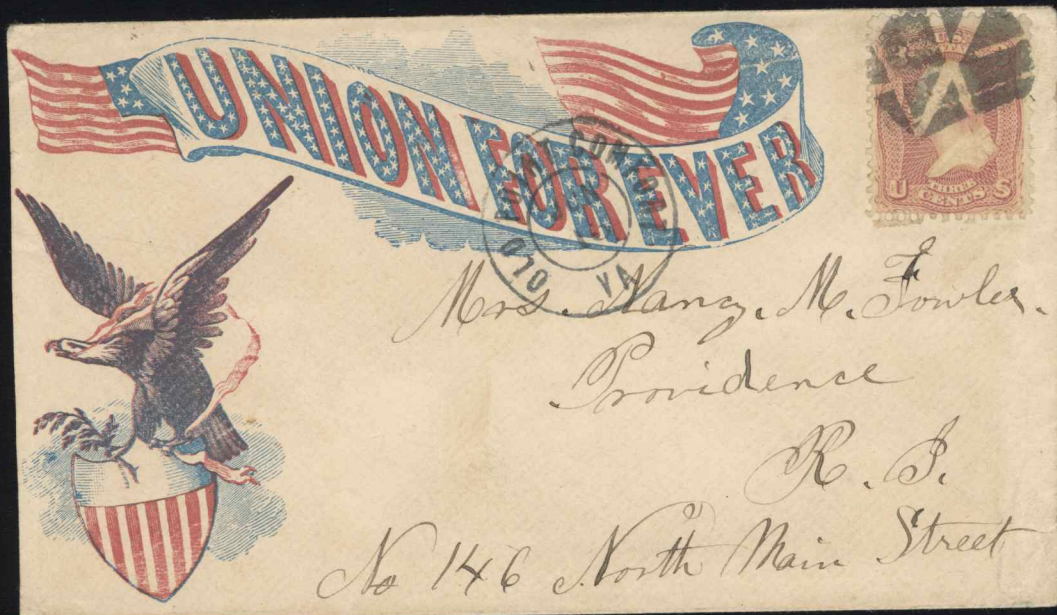 UNION FOREVER
OLD POINT COMFORT
VA
U S
CENTS
Mrs. Nancy. M. Fowler.
Providence
R. I.
No 146 North Main Street